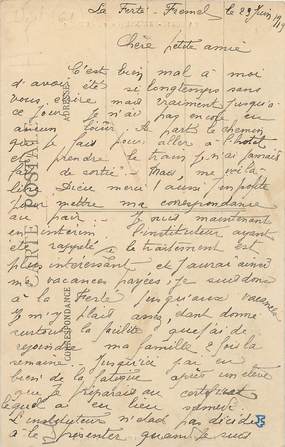 La Ferté-Fresnel le 23 Juin 19
Chère petite amie
C'est bien mal à moi
d'avoir été si longtemps sans
vous écrire mais vraiment jusqu'à
ce jour Je n'ai pas encore eu
aucun loisir. A part le chemin
que je fais pour aller à l'hôtel
et prendre le train je n'ai jamais
fait de sortie. Mais me voilà
libre Dieu merci! aussi j'en profite
pour mettre ma correspondance
au pair. Je suis maintenant
en intérim l'instituteur ayant
été rappelé le traitement est
plus intéressant et j'aurai ainsi
mes vacances payées. Je suis donc
à la Ferté jusqu'aux vacances
Je m'y plais assez étant donné
surtout la facilité que j'ai de
rejoindre ma famille fois la
semaine. Jusqu'ici j'ai eu
bien de la fatigue après un élève
que je préparais au certificat
lequel a eu lieu samedi
L'instituteur n'était pas décidé
à le présenter quand je suis
CARTE POSTALE
CORRESPONDANCE
ADRESSE